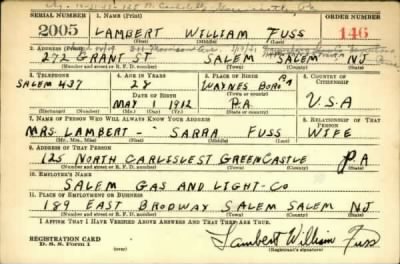 SERIAL NUMBER 1. NAME (Print) ORDER NUMBER
2005 LAMBERT WILLIAM FUSS 146
(First) (Middle) (Last)
2. ADDRESS (Print)
272 GRANT ST SALEM SALEM NJ
(Number and street or R. F. D. number) (Town) (County) (State)
3. TELEPHONE 4. AGE IN YEARS 5. PLACE OF BIRTH 6. COUNTRY OF CITIZENSHIP
SALEM 437 28 WAYNES BORO PA
DATE OF BIRTH
MAY 1 1912 PA. U.S.A
(Exchange) (Number) (Mo.) (Day) (Yr.) (Town) (County) (State or country)
7. NAME OF PERSON WHO WILL ALWAYS KNOW YOUR ADDRESS 8. RELATIONSHIP OF THAT PERSON
MRS LAMBERT - SARRA FUSS WIFE
(Mr., Mrs., Miss) (First) (Middle) (Last)
9. ADDRESS OF THAT PERSON
125 NORTH CARLESLEST GREENCASTLE PA
(Number and street or R. F. D. number) (Town) (County) (State)
10. EMPLOYER'S NAME
SALEM GAS AND LIGHT-CO
11. PLACE OF EMPLOYMENT OR BUSINESS
189 EAST BRODWAY SALEM SALEM NJ
(Number and street or R. F. D. number) (Town) (County) (State)
I AFFIRM THAT I HAVE VERIFIED ABOVE ANSWERS AND THAT THEY ARE TRUE.
REGISTRATION CARD
D. S. S. Form 1
Lambert William Fuss
(Registrant's signature)